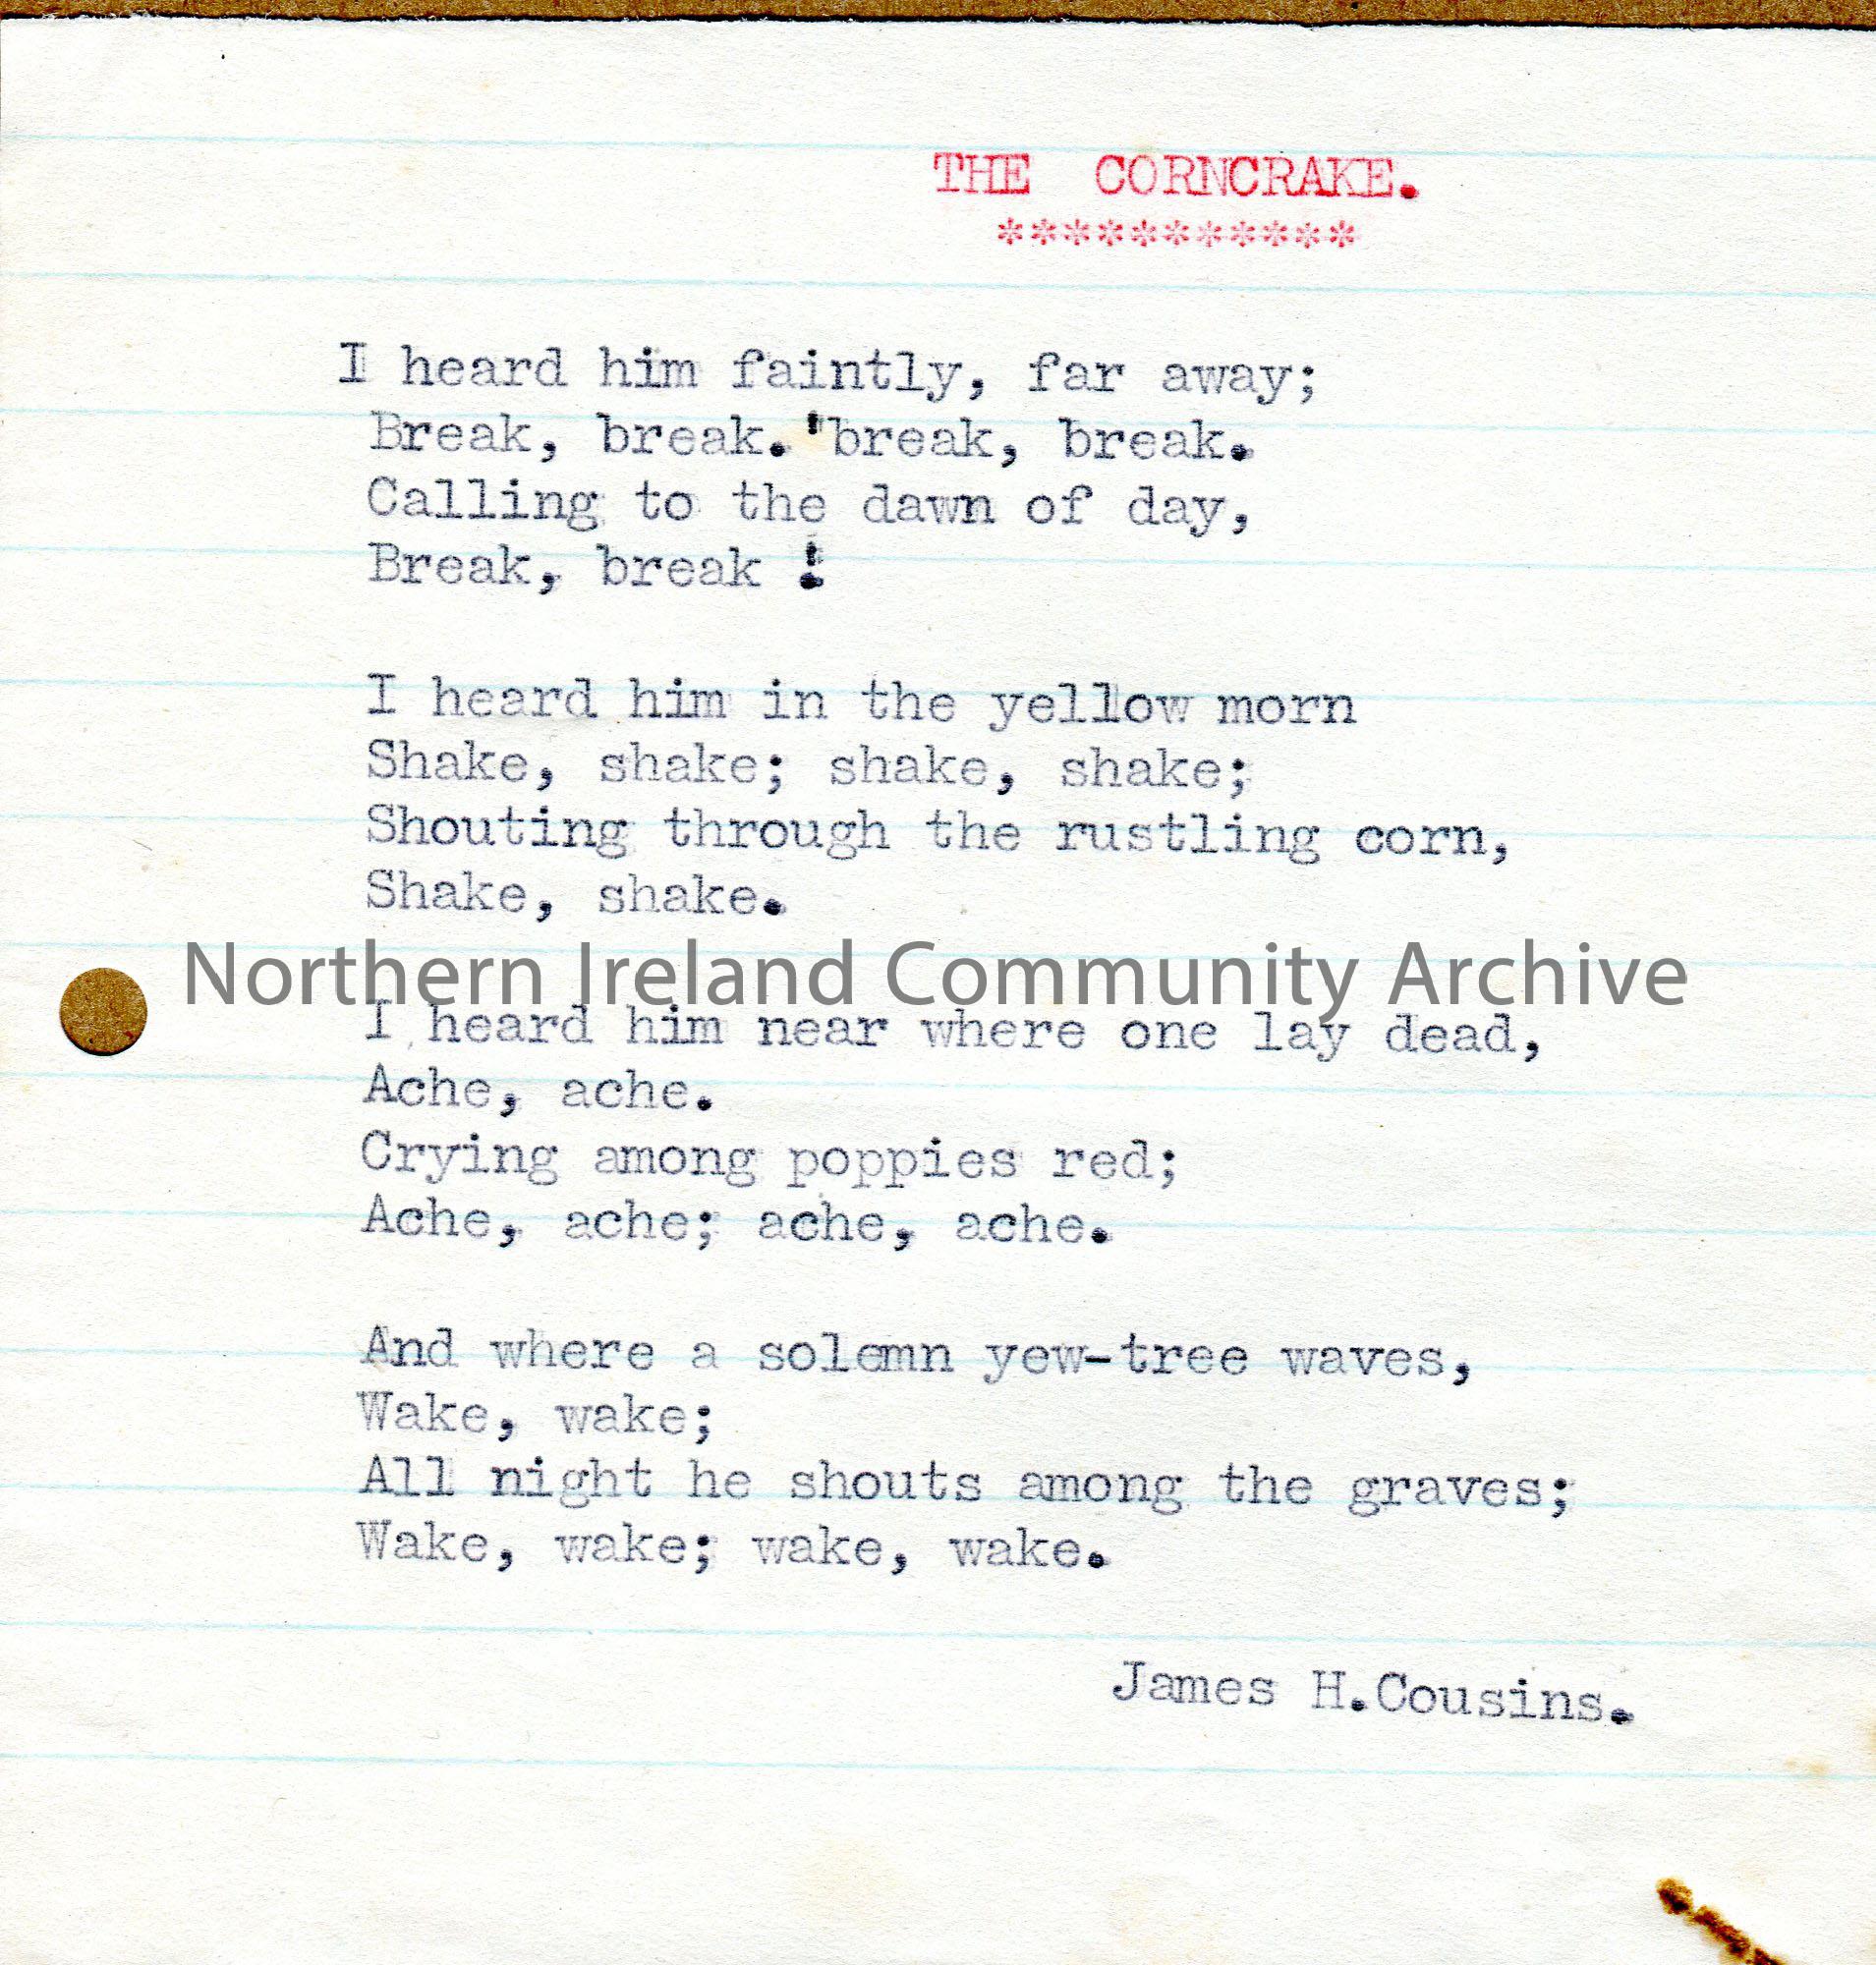 THE CORNCRAKE.
***********
I heard him faintly, far away;
Break, break. "break, break.
Calling to the dawn of day,
Break, break !
I heard him in the yellow morn
Shake, shake; shake, shake;
Shouting through the rustling corn,
Shake, shake.
Northern Ireland Community Archive
I heard him near where one lay dead,
Ache, ache.
Crying among poppies red;
Ache, ache; ache, ache.
And where a solemn yew-tree waves,
Wake, wake;
All night he shouts among the graves;
Wake, wake; wake, wake.
James H.Cousins.